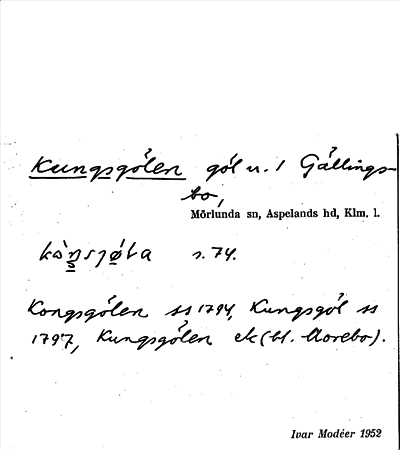 Kungsgölen göl n. / Gällings-
bo,
Mörlunda sn, Aspelands hd, Klm. l.
s. 74.
Kongsgölen ss 1794, Kungsgöl ss
1797, Kungsgölen ek (bl. Morebo).
Ivar Modéer 1952